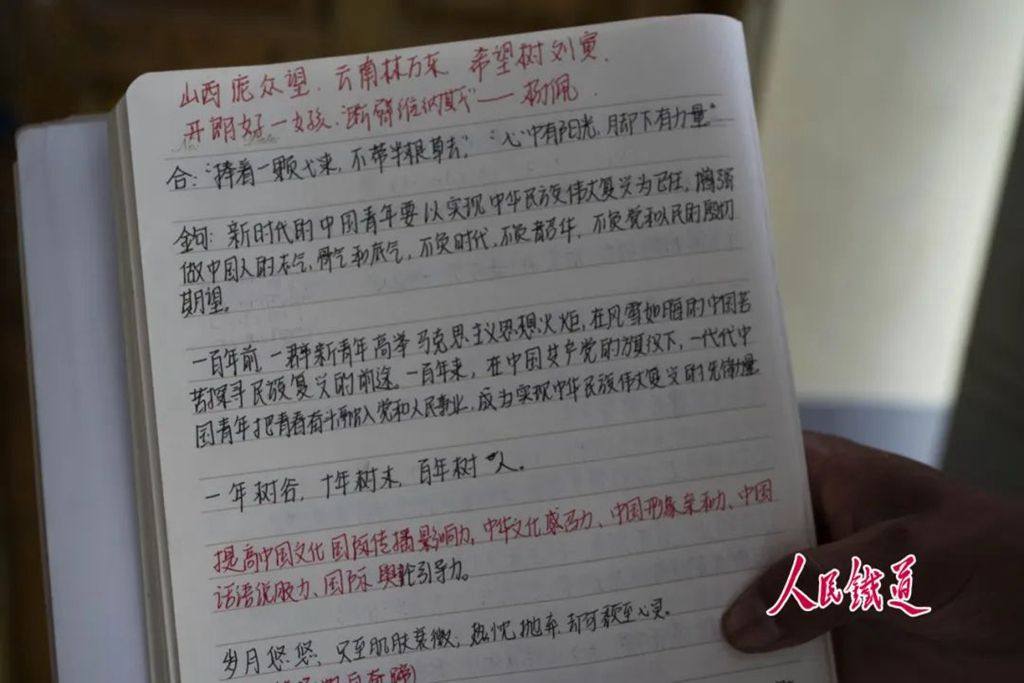 山西庞众望、云南林万东、希望树刘寅、
开朗好一女孩、断臂维纳斯——杨佩.
合:“捧着一颗心来,不带半根草去”,“心中有阳光,脚下有力量”
金句:新时代的中国青年要以实现中华民族伟大复兴为己任,增强
做中国人的志气,骨气和底气,不负时代,不负韶华,不负党和人民的殷切
期望。
一百年前,一群新青年高举马克思主义思想火炬,在风雪如晦的中国苦
苦探寻民族复兴的前途。一百年来,在中国共产党的旗帜下,一代代中
国青年把青春奋斗融入党和人民事业,成为实现中华民族伟大复兴的先锋力量
一年树谷,十年树木,百年树人。
提高中国文化国际传播影响力、中华文化感召力、中国形象亲和力、中国
话语说服力、国际舆论引导力。
岁月悠悠,只至肌肤衰微;热忱抛弃却可颓至心灵。
人民鐵道